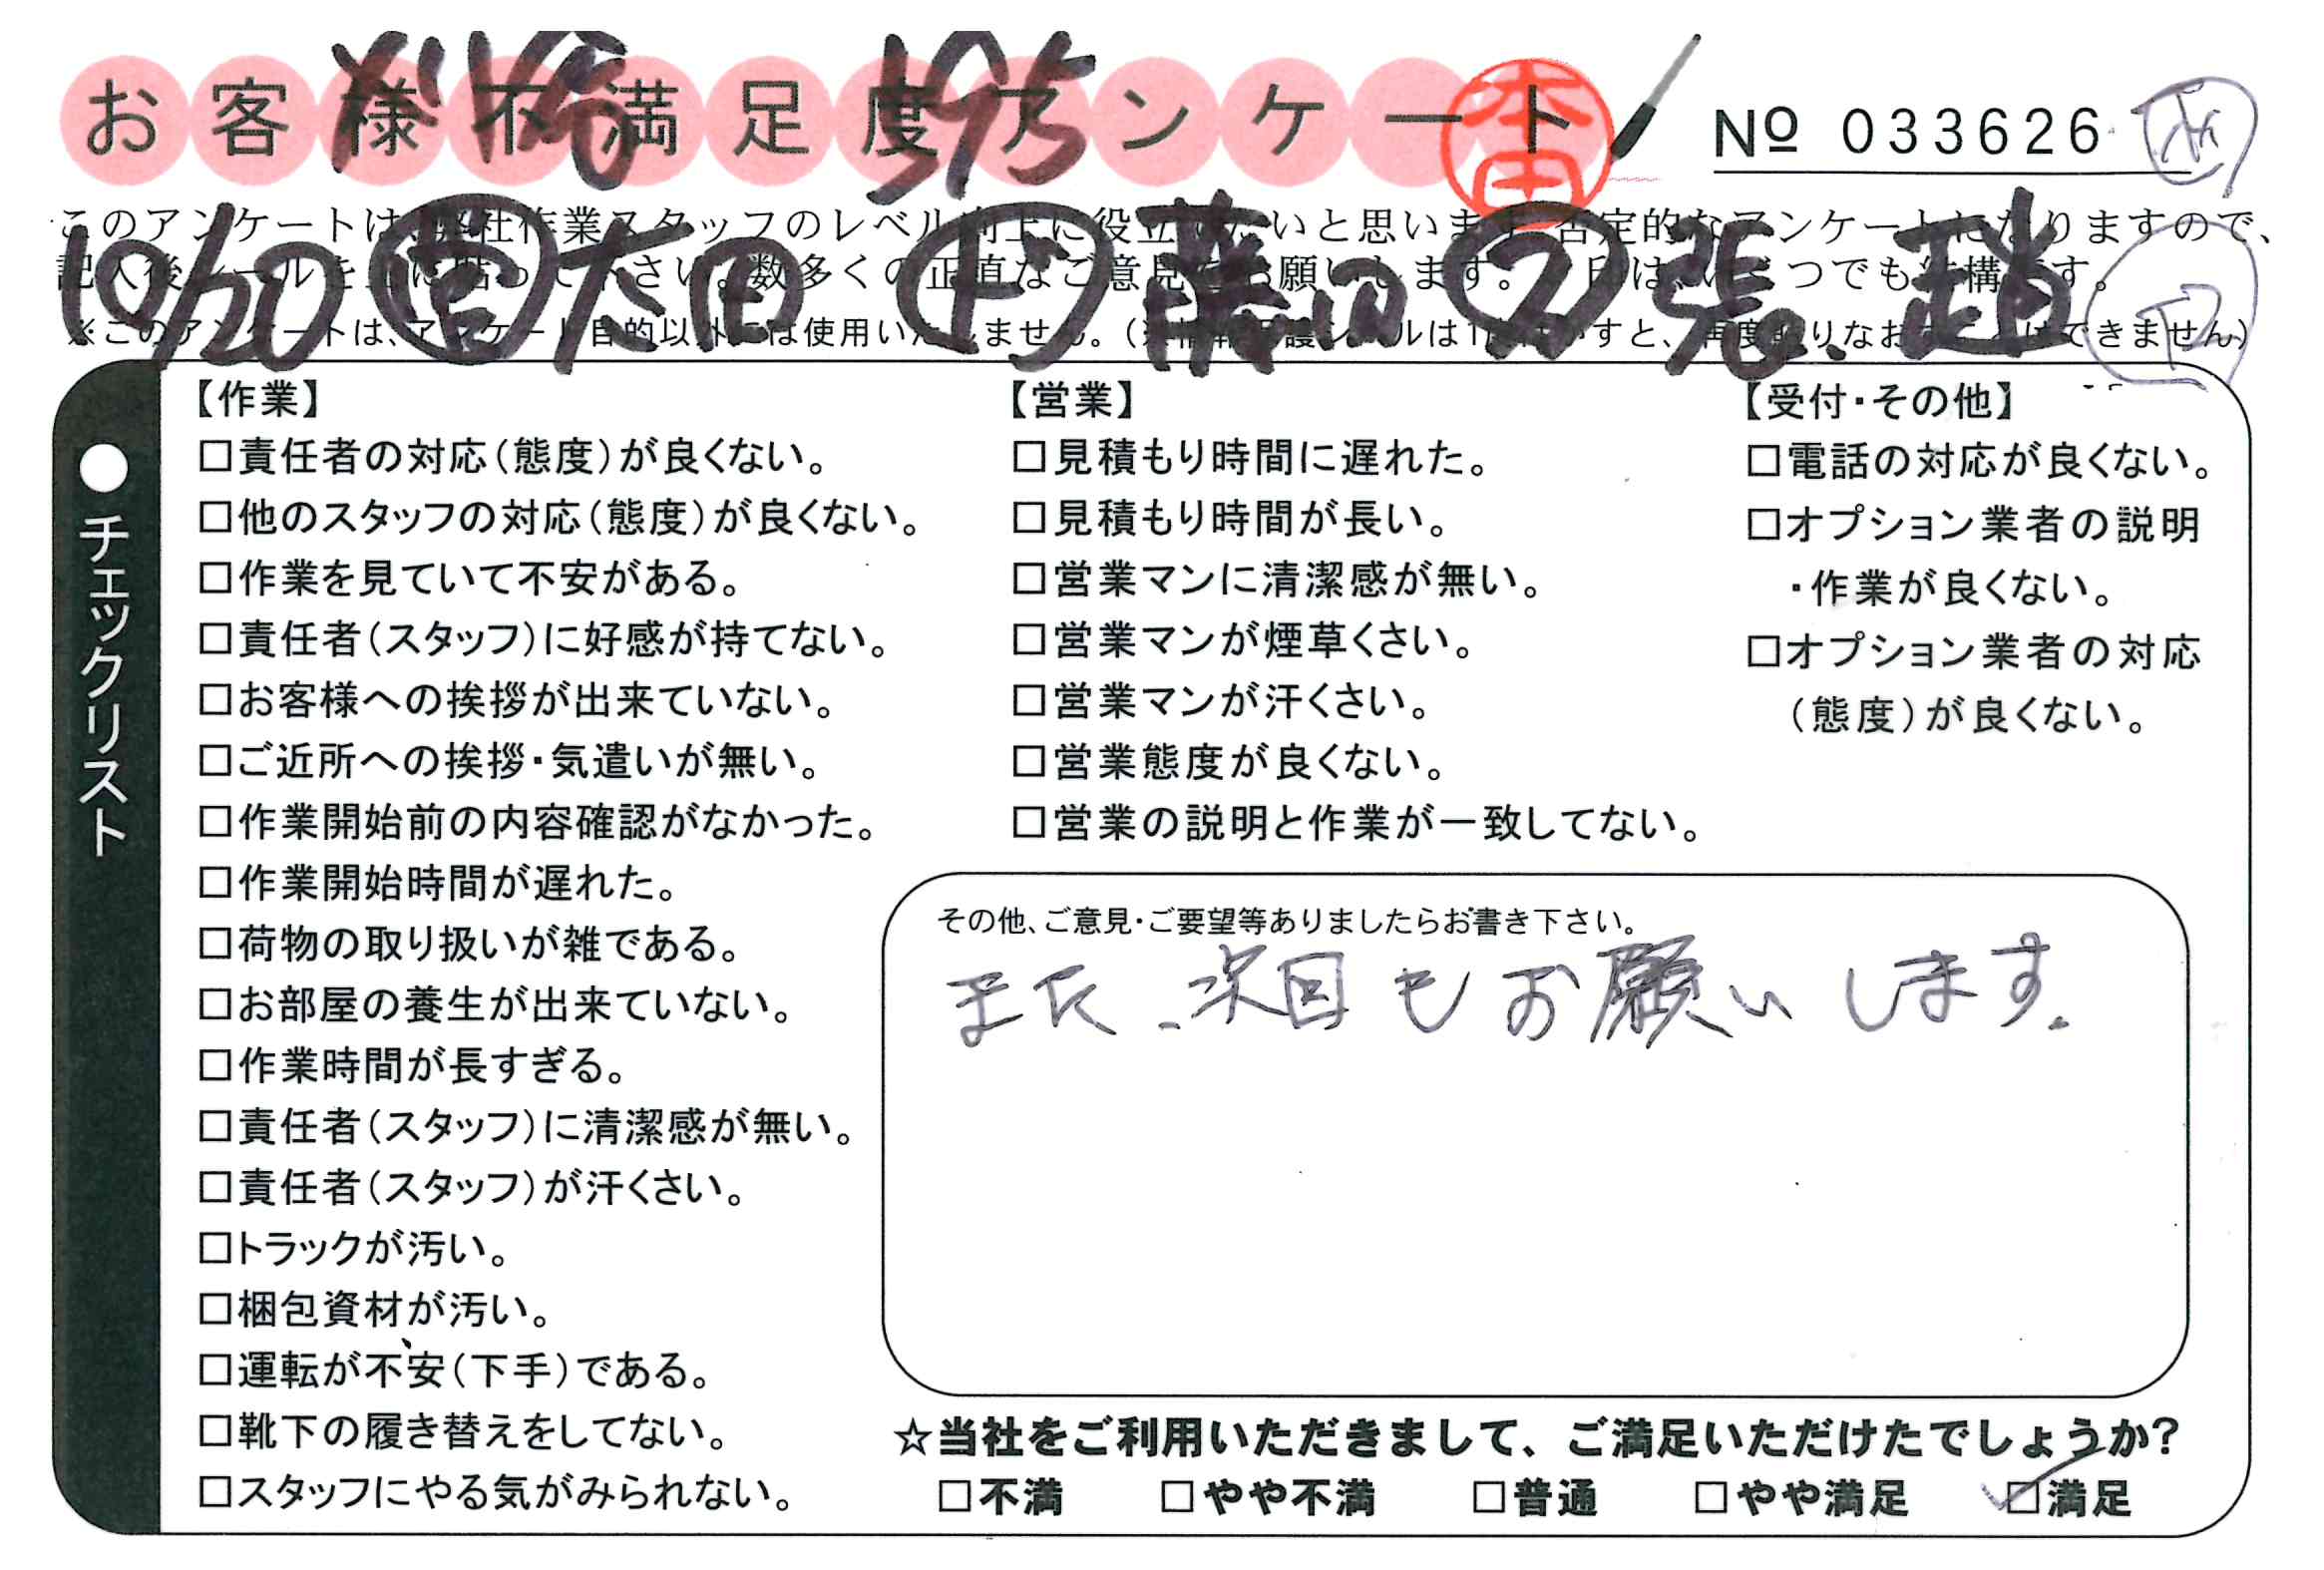 お客様不満足度アンケート
本田
Nº 033626
このアンケートは、弊社作業スタッフのレベル向上に役立てたいと思います。否定的なアンケートになりますので、
記入後シールを上に貼って下さい。数多くの正直なご意見をお願いします。✓印は、いくつでも結構です。
※このアンケートは、アンケート目的以外には使用いたしません。(※情報保護シールは1度はがすと、再度貼りなおすことはできません)
10/20 営 太田 ド 張、趙
●チェックリスト
【作業】
□責任者の対応(態度)が良くない。
□他のスタッフの対応(態度)が良くない。
□作業を見ていて不安がある。
□責任者(スタッフ)に好感が持てない。
□お客様への挨拶が出来ていない。
□ご近所への挨拶・気遣いが無い。
□作業開始前の内容確認がなかった。
□作業開始時間が遅れた。
□荷物の取り扱いが雑である。
□お部屋の養生が出来ていない。
□作業時間が長すぎる。
□責任者(スタッフ)に清潔感が無い。
□責任者(スタッフ)が汗くさい。
□トラックが汚い。
□梱包資材が汚い。
□運転が不安(下手)である。
□靴下の履き替えをしてない。
□スタッフにやる気がみられない。
【営業】
□見積もり時間に遅れた。
□見積もり時間が長い。
□営業マンに清潔感が無い。
□営業マンが煙草くさい。
□営業マンが汗くさい。
□営業態度が良くない。
□営業の説明と作業が一致してない。
【受付・その他】
□電話の対応が良くない。
□オプション業者の説明
・作業が良くない。
□オプション業者の対応
(態度)が良くない。
その他、ご意見・ご要望等ありましたらお書き下さい。
また、次回もお願いします。
☆当社をご利用いただきまして、ご満足いただけたでしょうか?
□不満 □やや不満 □普通 □やや満足 ☑満足